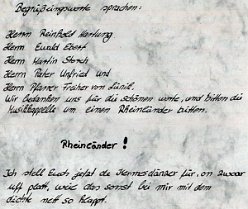 Begrüßungsworte sprachen:
Herrn Reinhold Hartung
Herrn Ewald Ebert
Herrn Martin Storch
Herrn Pater Unfried und
Herrn Pfarrer Freiherr von Lünik.
Wir bedanken uns für die schönen worte, und bitten die
Musikkappelle um einen Rheinländer bitten.
Rheinländer!
Ich stell Euch jetzt die Kirmestänzer für, on zwoar
uff platt, weie das sonst bei mir mit dem
dichte nett so klappt.